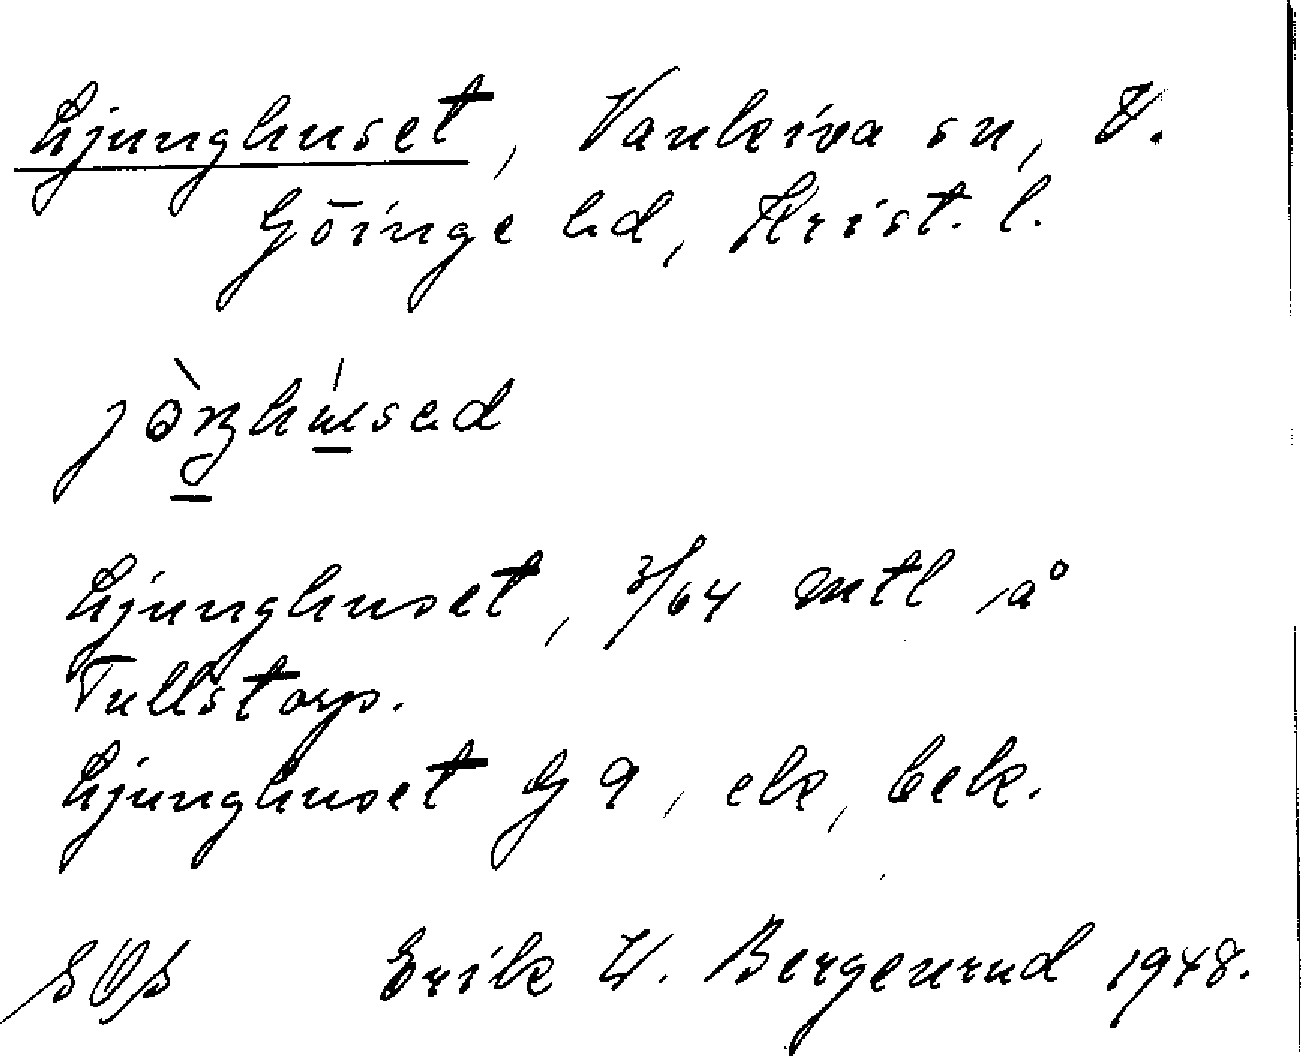 Ljunghuset, Vankiva sn, V.
Göinge hd, Krist. l.
Ljunghuset, 3/64 mtl på
Tullstorp.
Ljunghuset Jg 9, ek, bek.
SOS Erik W. Bergenrud 1948.